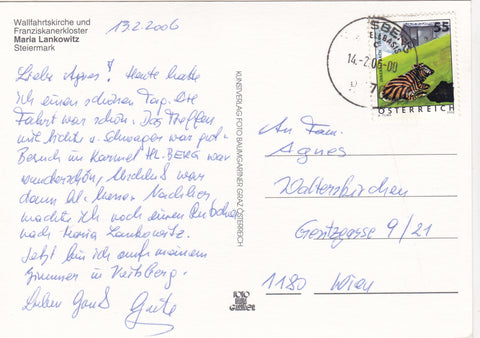 Wallfahrtskirche und
Franziskanerkloster
Maria Lankowitz
Steiermark
13.2.2006
Liebe Agnes! Heute hatte
ich einen schönen Tag. Die
Fahrt war schön. Das Treffen
mit Schwager war gut.
Besuch im Karmel HL. BERG war
wunderschön,
dann Nachher
machte ich noch einen Rutscher
nach Maria Lankowitz.
Jetzt bin ich auf meinem
Zimmer in Voitsberg.
Lieben Gruß
KUNSTVERLAG FOTO BAUMGARTNER GRAZ, ÖSTERREICH
14.-2.06-00
55
ÖSTERREICH
An Fam.
Agnes
Walterskirchen
Gentzgasse 9/21
1180 Wien